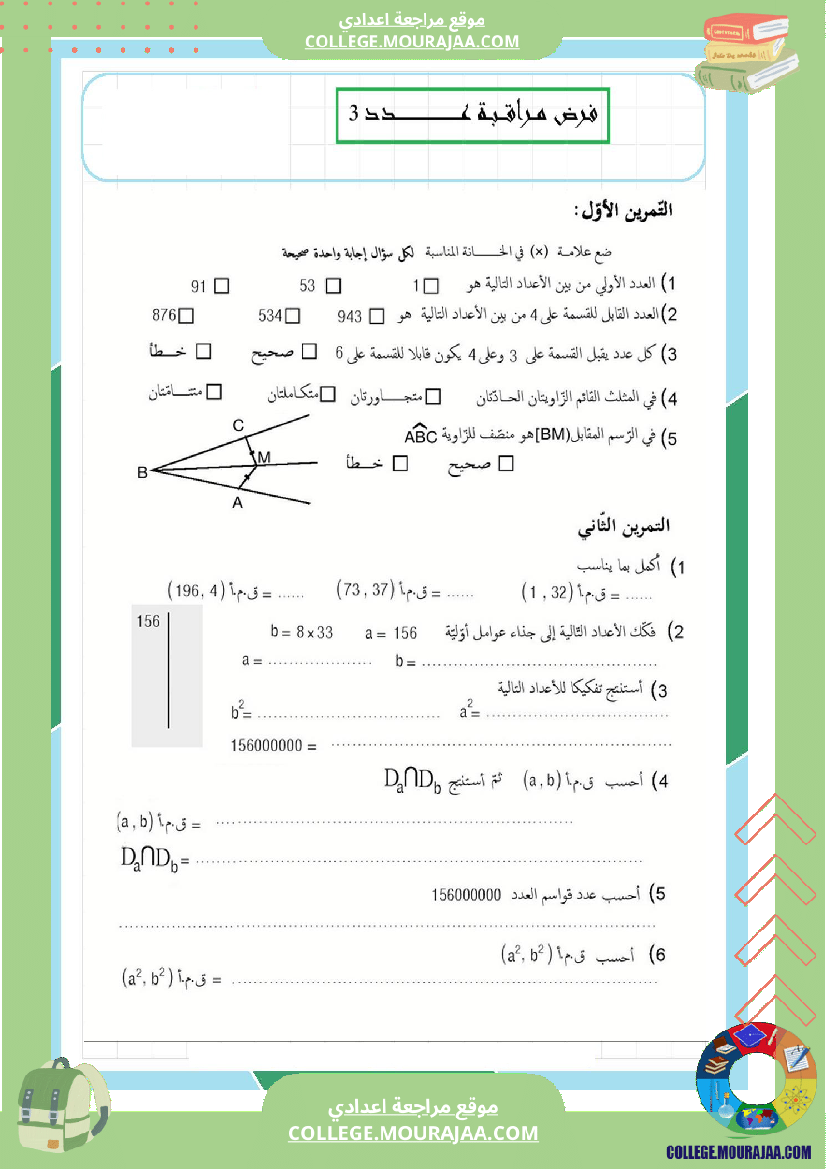 موقع مراجعة اعدادي
COLLEGE.MOURAJAA.COM
فرض مراقبة عـــدد 3
التّمرين الأوّل:
ضع علامة (x) في الخانة المناسبة لكل سؤال إجابة واحدة صحيحة
1) العدد الأولي من بين الأعداد التالية هو 1 53 91
2) العدد القابل للقسمة على 4 من بين الأعداد التالية هو 943 534 876
3) كل عدد يقبل القسمة على 3 وعلى 4 يكون قابلا للقسمة على 6 صحيح خطأ
4) في المثلث القائم الزّاويتان الحادّتان متجاورتان متكاملتان متتامّتان
5) في الرّسم المقابل [BM) هو منصّف للزّاوية ABC
صحيح خطأ
C
M
B
A
التمرين الثّاني
1) أكمل بما يناسب
ق.م.أ (1 , 32) = ...... ق.م.أ (73 , 37) = ...... ق.م.أ (196 , 4) = ......
2) فكّك الأعداد التّالية إلى جذاء عوامل أوّليّة a = 156 b = 8 x 33
156
a = .................... b = ..............................................
3) أستنتج تفكيكا للأعداد التالية
a²= ................................... b²= ...................................
156000000 = ..................................................................
4) أحسب ق.م.أ (a , b) ثمّ أستنتج Da∩Db
ق.م.أ (a , b) = ..................................................................
Da∩Db = ..................................................................
5) أحسب عدد قواسم العدد 156000000
..................................................................
6) أحسب ق.م.أ (a², b²)
ق.م.أ (a², b²) = ..................................................................
موقع مراجعة اعدادي
COLLEGE.MOURAJAA.COM
COLLEGE.MOURAJAA.COM